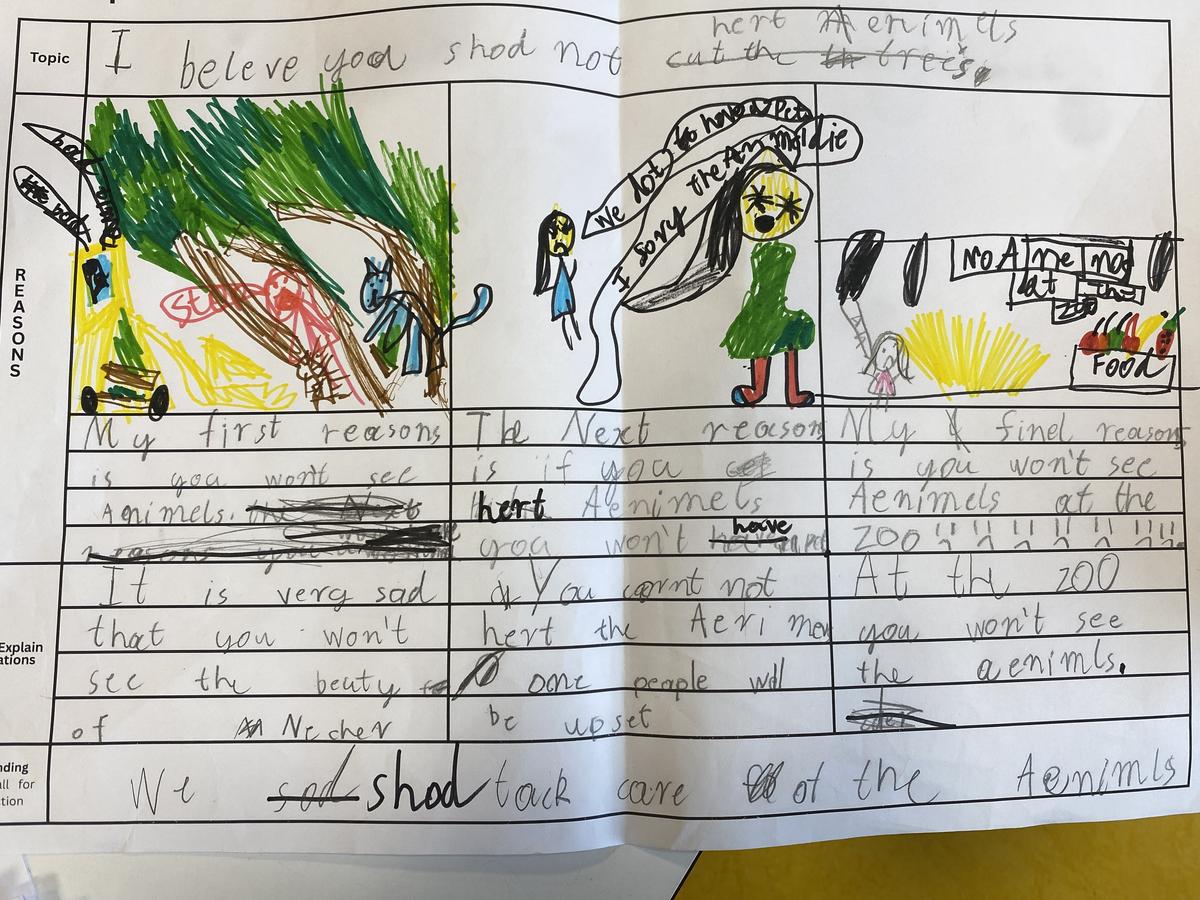 hert Aenimels
Topic
I beleve you shod not cut the trees
REASONS
bad
the beuty
stop
We dot to have a Pet
I sory the Anmal die
No Ane mol
at the
zoo
FOOD
My first reasons
is you won't see
Aenimels. the Next
reasons you
The Next reason
is if you
hert Aenimels
you won't have
My finel reasons
is you won't see
Aenimels at the
ZOO
Explain
ations
It is very sad
that you won't
see the beuty
of Necher
You carnt not
hert the Aeri men
one people will
be upset
At the ZOO
you won't see
the aenimls.
nding
all for
ction
We sod shod tack care of the Aenimls